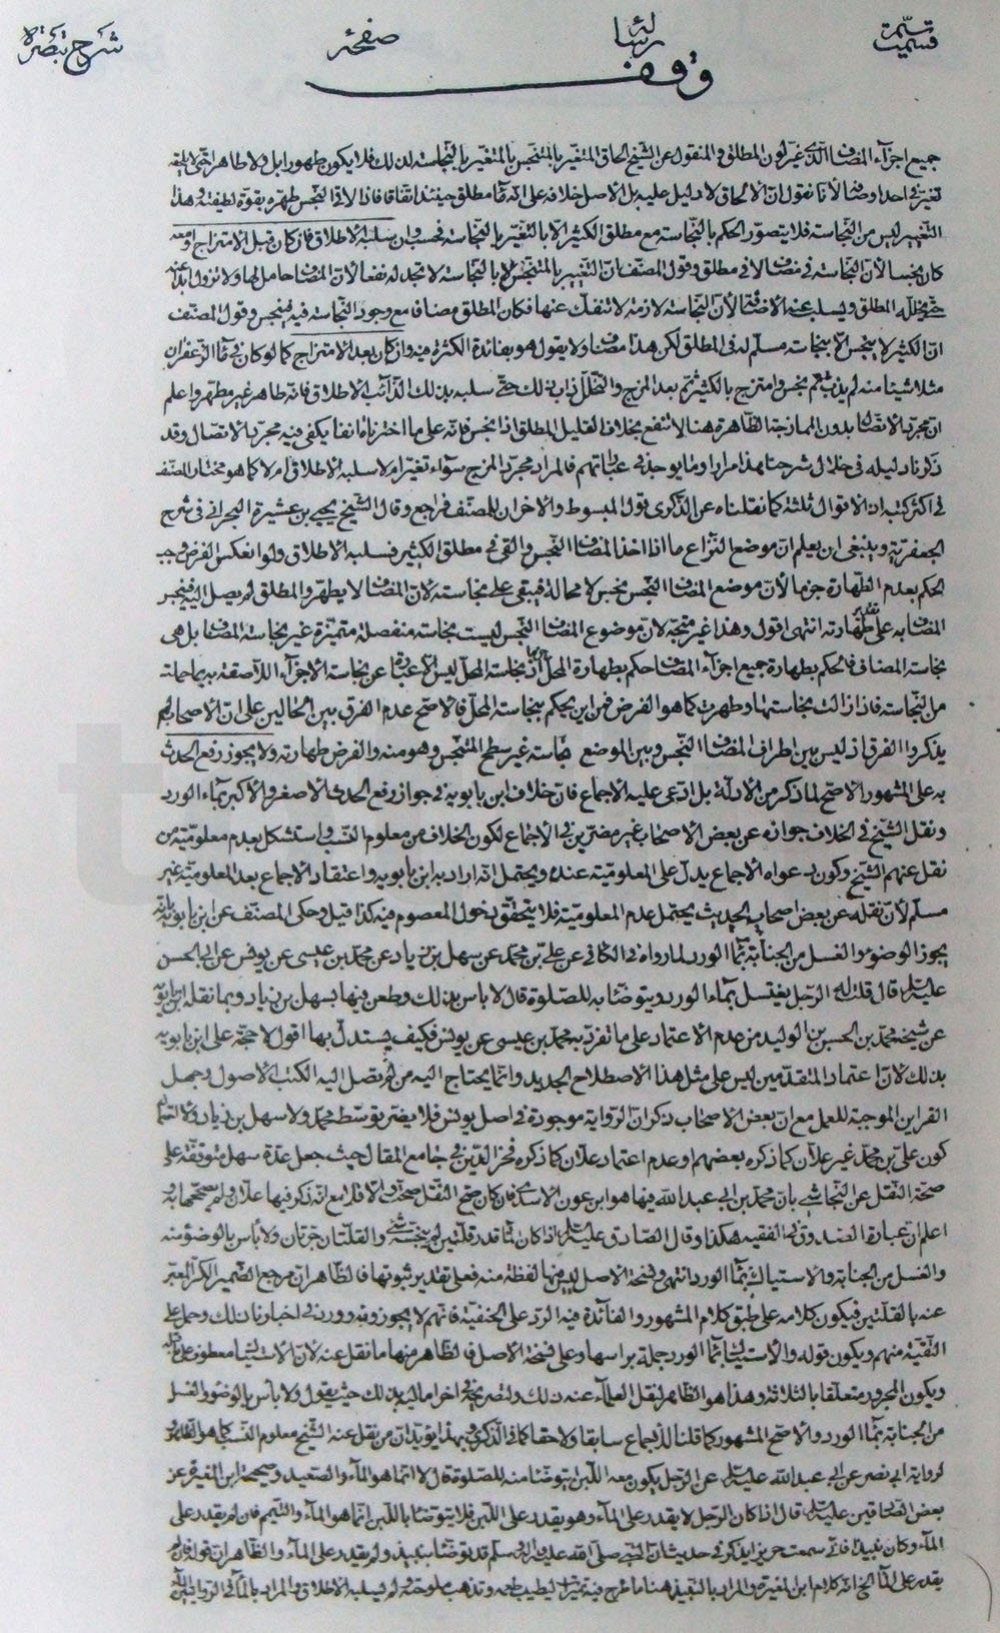 شرح تبصرة صفحة رسالة تتمة قسمت
وقف
جميع اجزاء المضاف الذي غير لون المطلق والمنقول عن الشيخ الحاق المتغير بالمتنجس بالمتغير بالنجاسة لذلك فلا يكون طهورا بل ولا طاهرا حتى
تغير احد اوصافه لانا نقول ان الالحاق لا دليل عليه بل الاصل خلافه على انه ماء مطلق حينئذ اتفاقا فاذا لاقى النجس طهره بقوة لطيفته وهذا
التغيير ليس من النجاسة فلا يتصور الحكم بالنجاسة مع مطلق الكثير الا بالتغير بالنجاسة فحسب وان سلبه الاطلاق فان كان قبل الامتزاج ومعه
كان نجسا لان النجاسة في مضاف لا في مطلق وقول المصنف ان التغيير بالمتنجس لا بالنجاسة لا تجد له نفعا لان المضاف حامل لها ولا تزول
المطلق ويسلب عنه الاضافة لان النجاسة لازمة لا تنفك عنها فكان المطلق مضافا مع وجود النجاسة فيه فينجس وقول المصنف
ان الكثير لا ينجس الا بنجاسة مسلم له في المطلق لكن هذا مضاف ولا يقول هو بفائدة الكثرة فيه وان كان بعد الامتزاج كما لو كان في ماء الزعفران
مثلا شيئا منه لم يذب ثم نجس وامتزج بالكثير ثم بعد المزج والتخلل ذاب ذلك حتى سلبه بذلك الذائب الاطلاق فانه طاهر غير مطهر واعلم
ان مجرد الاتصال بدون الممازجة الظاهرة هنا لا تنفع بخلاف القليل المطلق اذا نجس فانه على ما اخترناه انفا يكفي فيه مجرد الاتصال وقد
ذكرنا دليله في خلال شرحنا هذا مرارا وما يوجد في عباراتهم فالمراد مجرد المزج سواء تغير ام لا سلبه الاطلاق ام لا كما هو مختار المصنف
في اكثر كتبه اذ الاقوال ثلثة كما نقلناه عن الذكرى قول المبسوط والاخران للمصنف فراجع وقال الشيخ يحيى بن عشيرة البحراني في شرح
الجعفرية وينبغي ان يعلم ان موضع النزاع ما اذا اخذ المضاف النجس والقي في مطلق الكثير فسلبه الاطلاق ولو انعكس الفرض وجب
الحكم بعدم الطهارة جزما لان موضع المضاف النجس نجس لا محالة فيبقى على نجاسته لان المضاف لا يطهر والمطلق لم يصل اليه فينجس
المضاف به على طهارته انتهى اقول وهذا غير متجه لان موضوع المضاف النجس ليست نجاسته منفصلة متميزة غير نجاسة المضاف بل هي
نجاسة المضاف فالحكم بطهارة جميع اجزاء المضاف حكم بطهارة المحل اذ نجاسة المحل ليس الا عبارة عن نجاسة الاجزاء اللاصقة به بما حملت
من النجاسة فاذا زالت نجاستها وطهرت كما هو الفرض فمن اين يحكم بنجاسة المحل فالاصح عدم الفرق بين الحالين على ان الاصحاب لم
يذكروا الفرق اذ ليس بين اطراف المضاف النجس وبين الموضع نجاسة غير سطح المتنجس وهو منه والفرض طهارته ولا يجوز رفع الحدث
به على المشهور الاصح لما ذكر من الادلة بل ادعى عليه الاجماع فان خلاف ابن بابويه في جواز رفع الحدث الاصغر والاكبر بماء الورد
ونقل الشيخ في الخلاف جوازه عن بعض الاصحاب غير مضرين في الاجماع لكون الخلاف من معلوم النسب واستشكل بعدم معلومية من
نقل عنهم الشيخ وكون دعواه الاجماع يدل على المعلومية عنده ويحتمل انه اراد به ابن بابويه واعتقاد الاجماع بعد المعلومية غير
مسلم لان نقله عن بعض اصحاب الحديث يحتمل عدم المعلومية فلا يتحقق دخول المعصوم فيه كذا قيل وحكى المصنف عن ابن بابويه بانه
يجوز الوضوء والغسل من الجنابة بماء الورد لما رواه في الكافي عن علي بن محمد عن سهل بن زياد عن محمد بن عيسى عن يونس عن ابي الحسن
عليه السلام قال قلت له الرجل يغتسل بماء الورد ويتوضأ به للصلوة قال لا باس بذلك وطعن فيها بسهل بن زياد وبما نقله ابن بابويه
عن شيخه محمد بن الحسن بن الوليد من عدم الاعتماد على ما تفرد به محمد بن عيسى عن يونس فكيف يستدل بها اقول لا حجة على ابن بابويه
بذلك لان اعتماد المتقدمين ليس على مثل هذا الاصطلاح الجديد وانما يحتاج اليه من لم تصل اليه الكتب الاصول وجهل
القراين الموجبة للعمل مع ان بعض الاصحاب ذكر ان الرواية موجودة في اصل يونس فلا يضر توسط محمد ولا سهل بن زياد
كون علي بن محمد غير علان كما ذكره بعضهم او عدم اعتماد علان كما ذكره فخر الدين في جامع المقال حيث جعل عدة سهل متوقفة على
صحة النقل عن النجاشي بان محمد بن ابي عبد الله فيها هو ابن عون الاسدي فان كان صح النقل صحت والا فلا مع انه ذكر فيها علان ولم
اعلم ان عبارة الصدوق في الفقيه هكذا وقال الصادق عليه السلام اذا كان الماء قدر قلتين لم ينجسه شيء والقلتان جرتان ولا باس بالوضوء منه
والغسل من الجنابة والاستياك بماء الورد انتهى وفي نسخة الاصل ليس فيها لفظة منه فعلى تقدير ثبوتها فالظاهر ان مرجع الضمير الكر المعبر
عنه بالقلتين فيكون كلامه على طبق كلام المشهور والفائدة فيه الرد على الحنفية فانهم لا يجوزونه وورد في اخبارنا ذلك وحمل على
التقية منهم ويكون قوله والاستياك بماء الورد جملة براسها وعلى نسخة الاصل فالظاهر منها ما نقل عنه لان الاستياك معطوف على
ويكون المجرور متعلقا بالثلاثة وهذا هو الظاهر لنقل العلماء عنه ذلك ولتصريحه في اخر اماليه بذلك حيث يقول ولا باس بالوضوء والغسل
من الجنابة بماء الورد والاصح المشهور كما قلنا للاجماع سابقا ولاحقا كما في الذكرى وبهذا يؤيد ان من نقل عنه الشيخ معلوم النسب كما هو الظاهر
لرواية ابي نصر عن ابي عبد الله عليه السلام عن الرجل يكون معه اللبن ايتوضأ منه للصلوة قال لا انما هو الماء والصعيد وصحيحة ابن المغيرة عن
بعض الصادقين عليه السلام قال اذا كان الرجل لا يقدر على الماء وهو يقدر على اللبن فلا يتوضأ باللبن انما هو الماء والتيمم فان لم يقدر على
الماء وكان نبيذا فاني سمعت حريزا يذكر في حديث ان النبي صلى الله عليه وآله وسلم قد توضأ بنبيذ ولم يقدر على الماء والظاهر ان قوله فان لم
يقدر على الماء الخ انه كلام ابن المغيرة والمراد بالنبيذ هنا ما طرح فيه تميرات ليطيب طعمه وتذهب ملوحته ولم يسلبه الاطلاق والمراد بالماء في الروايتين